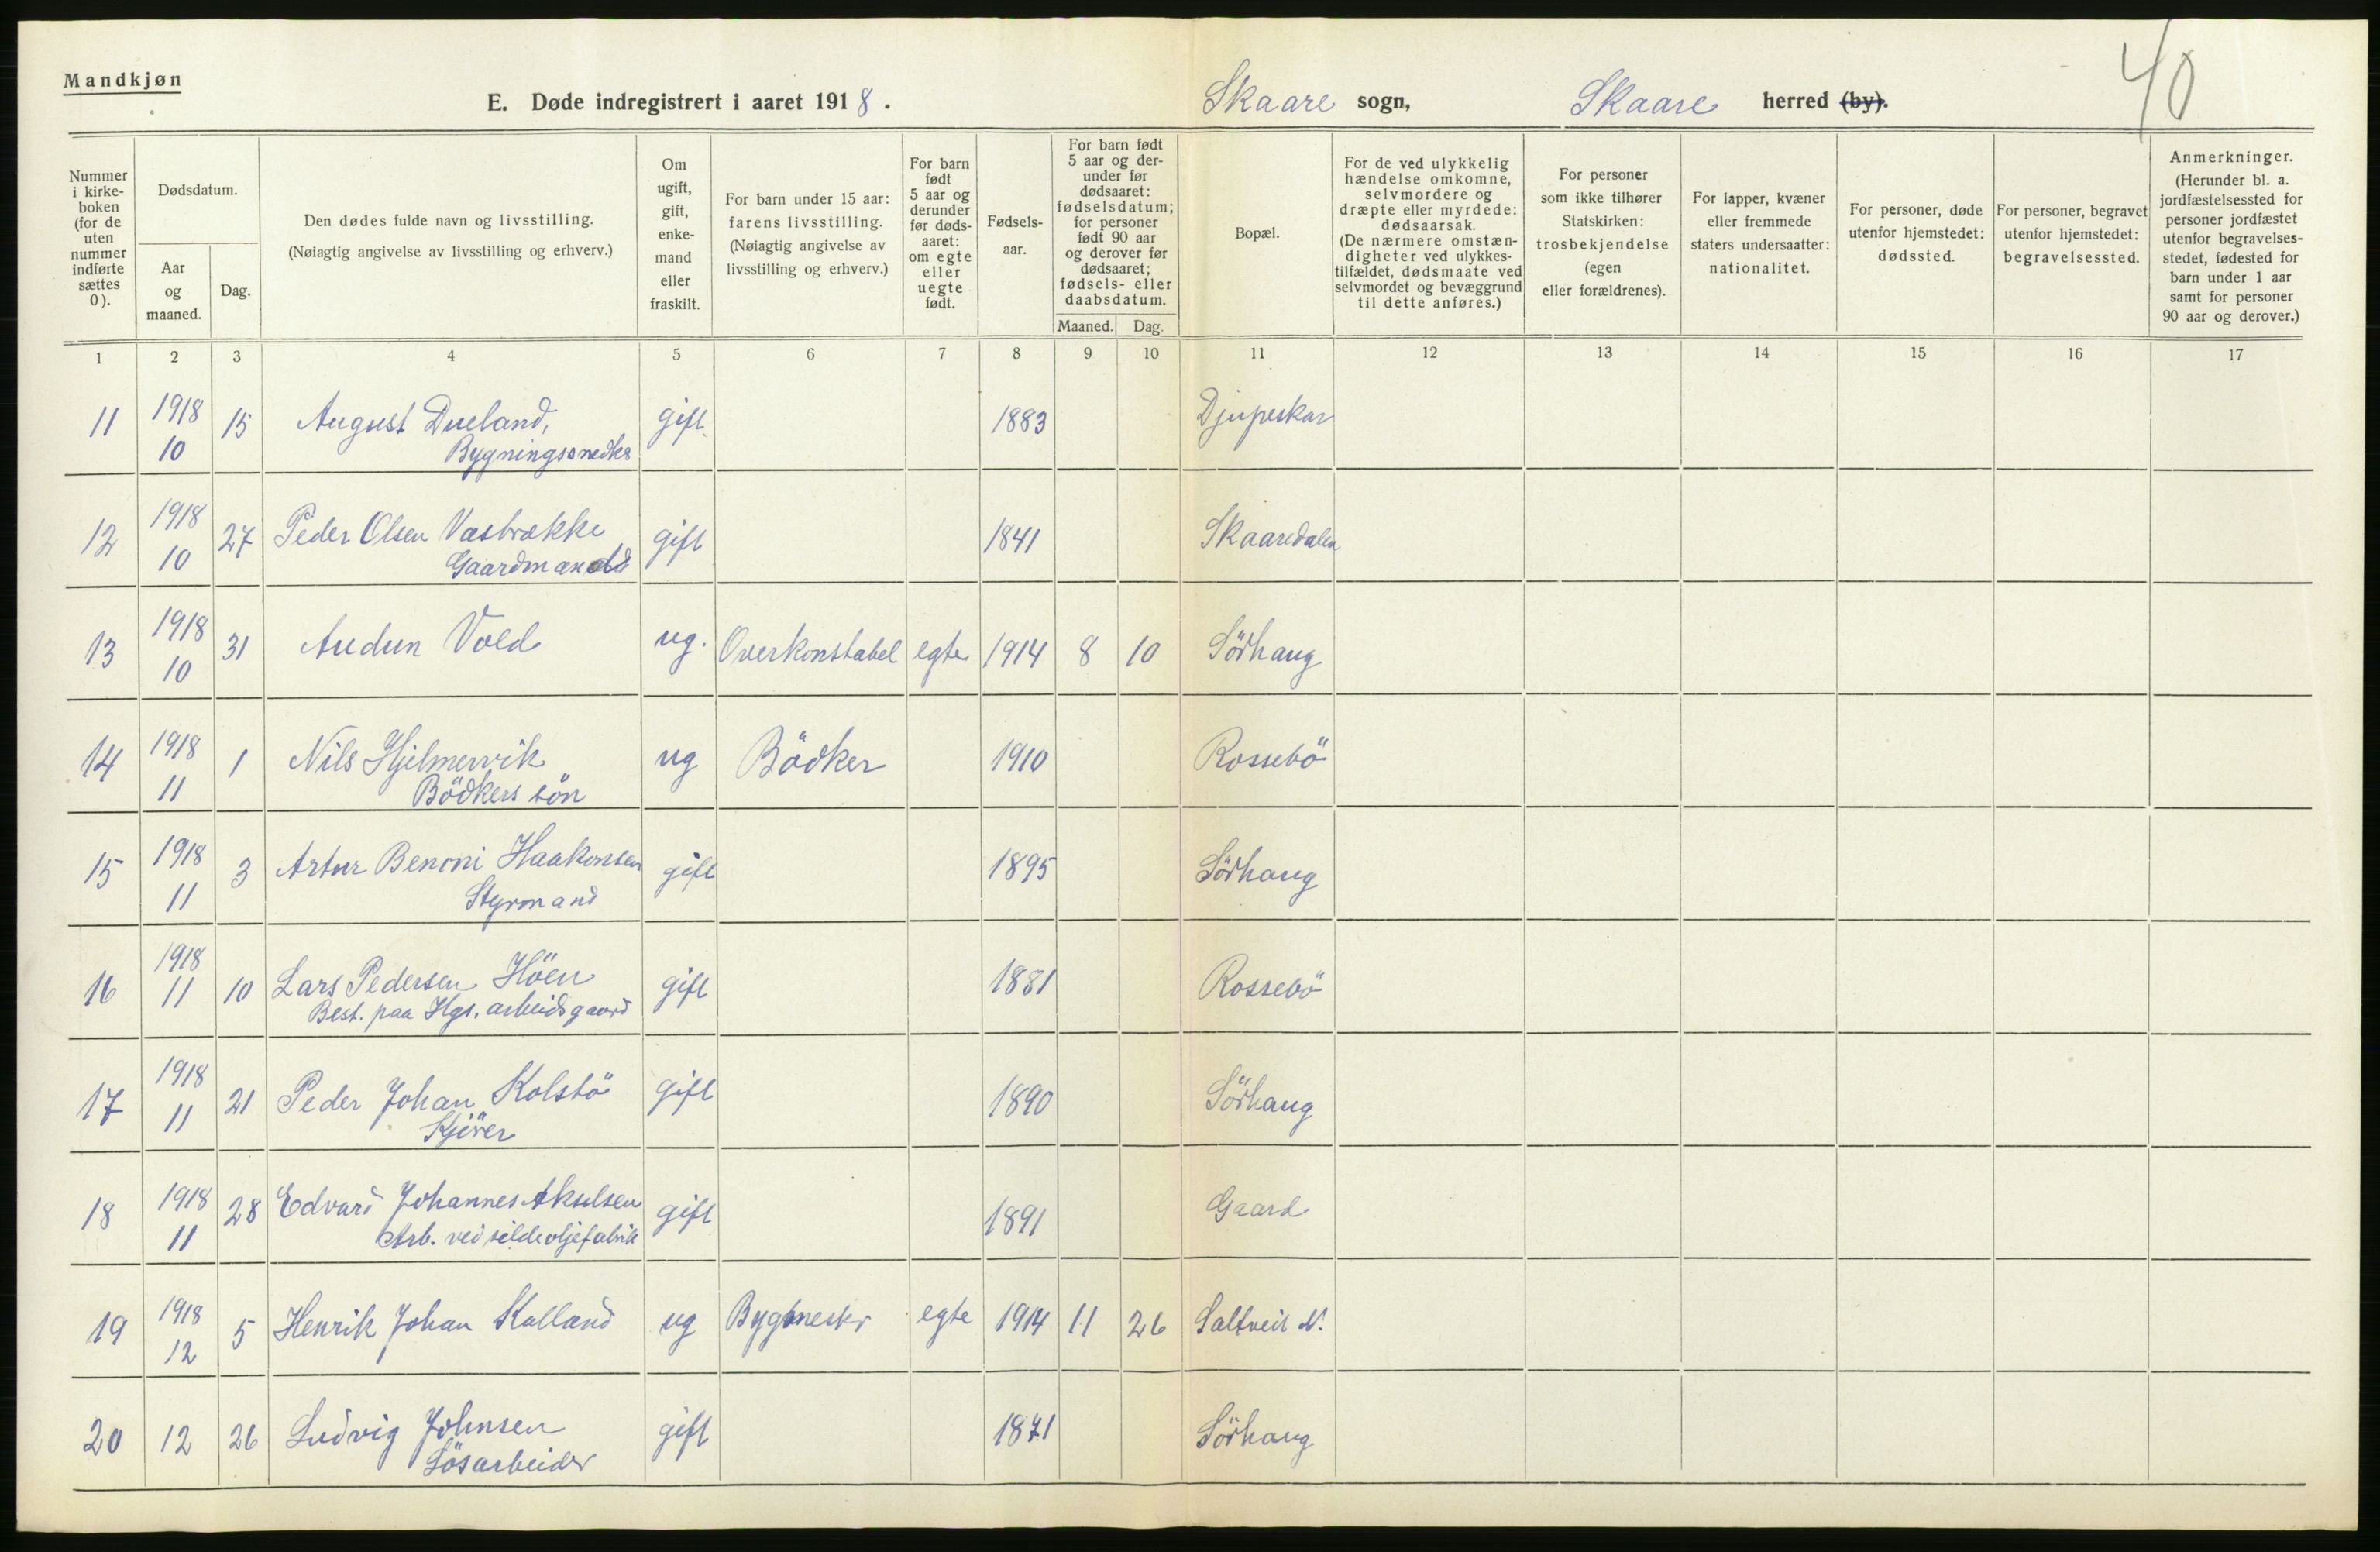 Mandkjøn
E. Døde indregistrert i aaret 1918. Skaare sogn, Skaare herred (by).
40
Nummer i kirkeboken (for de uten nummer indførte sættes 0).
Dødsdatum.
Aar og maaned.
Dag.
Den dødes fulde navn og livsstilling.
(Nøiagtig angivelse av livsstilling og erhverv.)
Om ugift, gift, enkemand eller fraskilt.
For barn under 15 aar: farens livsstilling.
(Nøiagtig angivelse av livsstilling og erhverv.)
For barn født 5 aar og derunder før dødsaaret: om egte eller uegte født.
Fødselsaar.
For barn født 5 aar og derunder før dødsaaret: fødselsdatum; for personer født 90 aar og derover før dødsaaret; fødsels- eller daabsdatum.
Maaned.
Dag.
Bopæl.
For de ved ulykkelig hændelse omkomne, selvmordere og dræpte eller myrdede: dødsaarsak.
(De nærmere omstændigheter ved ulykkestilfældet, dødsmaate ved selvmordet og bevæggrund til dette anføres.)
For personer som ikke tilhører Statskirken: trosbekjendelse (egen eller forældrenes).
For lapper, kvæner eller fremmede staters undersaatter: nationalitet.
For personer, døde utenfor hjemstedet: dødssted.
For personer, begravet utenfor hjemstedet: begravelsessted.
Anmerkninger.
(Herunder bl. a. jordfæstelsessted for personer jordfæstet utenfor begravelsesstedet, fødested for barn under 1 aar samt for personer 90 aar og derover.)
1 2 3 4 5 6 7 8 9 10 11 12 13 14 15 16 17
11 1918 10 15 August Dueland, gift 1883 Djupeskar
Bygningssnedker
12 1918 10 27 Peder Olsen Vasbrække gift 1841 Skaaredalen
Gaardmand
13 1918 10 31 Audun Vold ug. Overkonstabel egte 1914 8 10 Sörhaug
14 1918 11 1 Nils Hjelmervik ug Bödker 1910 Rossebö
Bödkers sön
15 1918 11 3 Artur Benoni Haakonsen gift 1895 Sörhaug
Styrmand
16 1918 11 10 Lars Pedersen Höen gift 1881 Rossebö
Best. paa Hgs. arbeidsgaard
17 1918 11 21 Peder Johan Kolstö gift 1890 Sörhaug
Kjörer
18 1918 11 28 Edvard Johannes Akselsen gift 1891 Gaard
Arb. ved sildeoljefabrik
19 1918 12 5 Henrik Johan Kalland ug Bygmestr egte 1914 11 26 Saltveit N.
20 12 26 Ludvig Johnsen gift 1871 Sörhaug
Lösarbeider